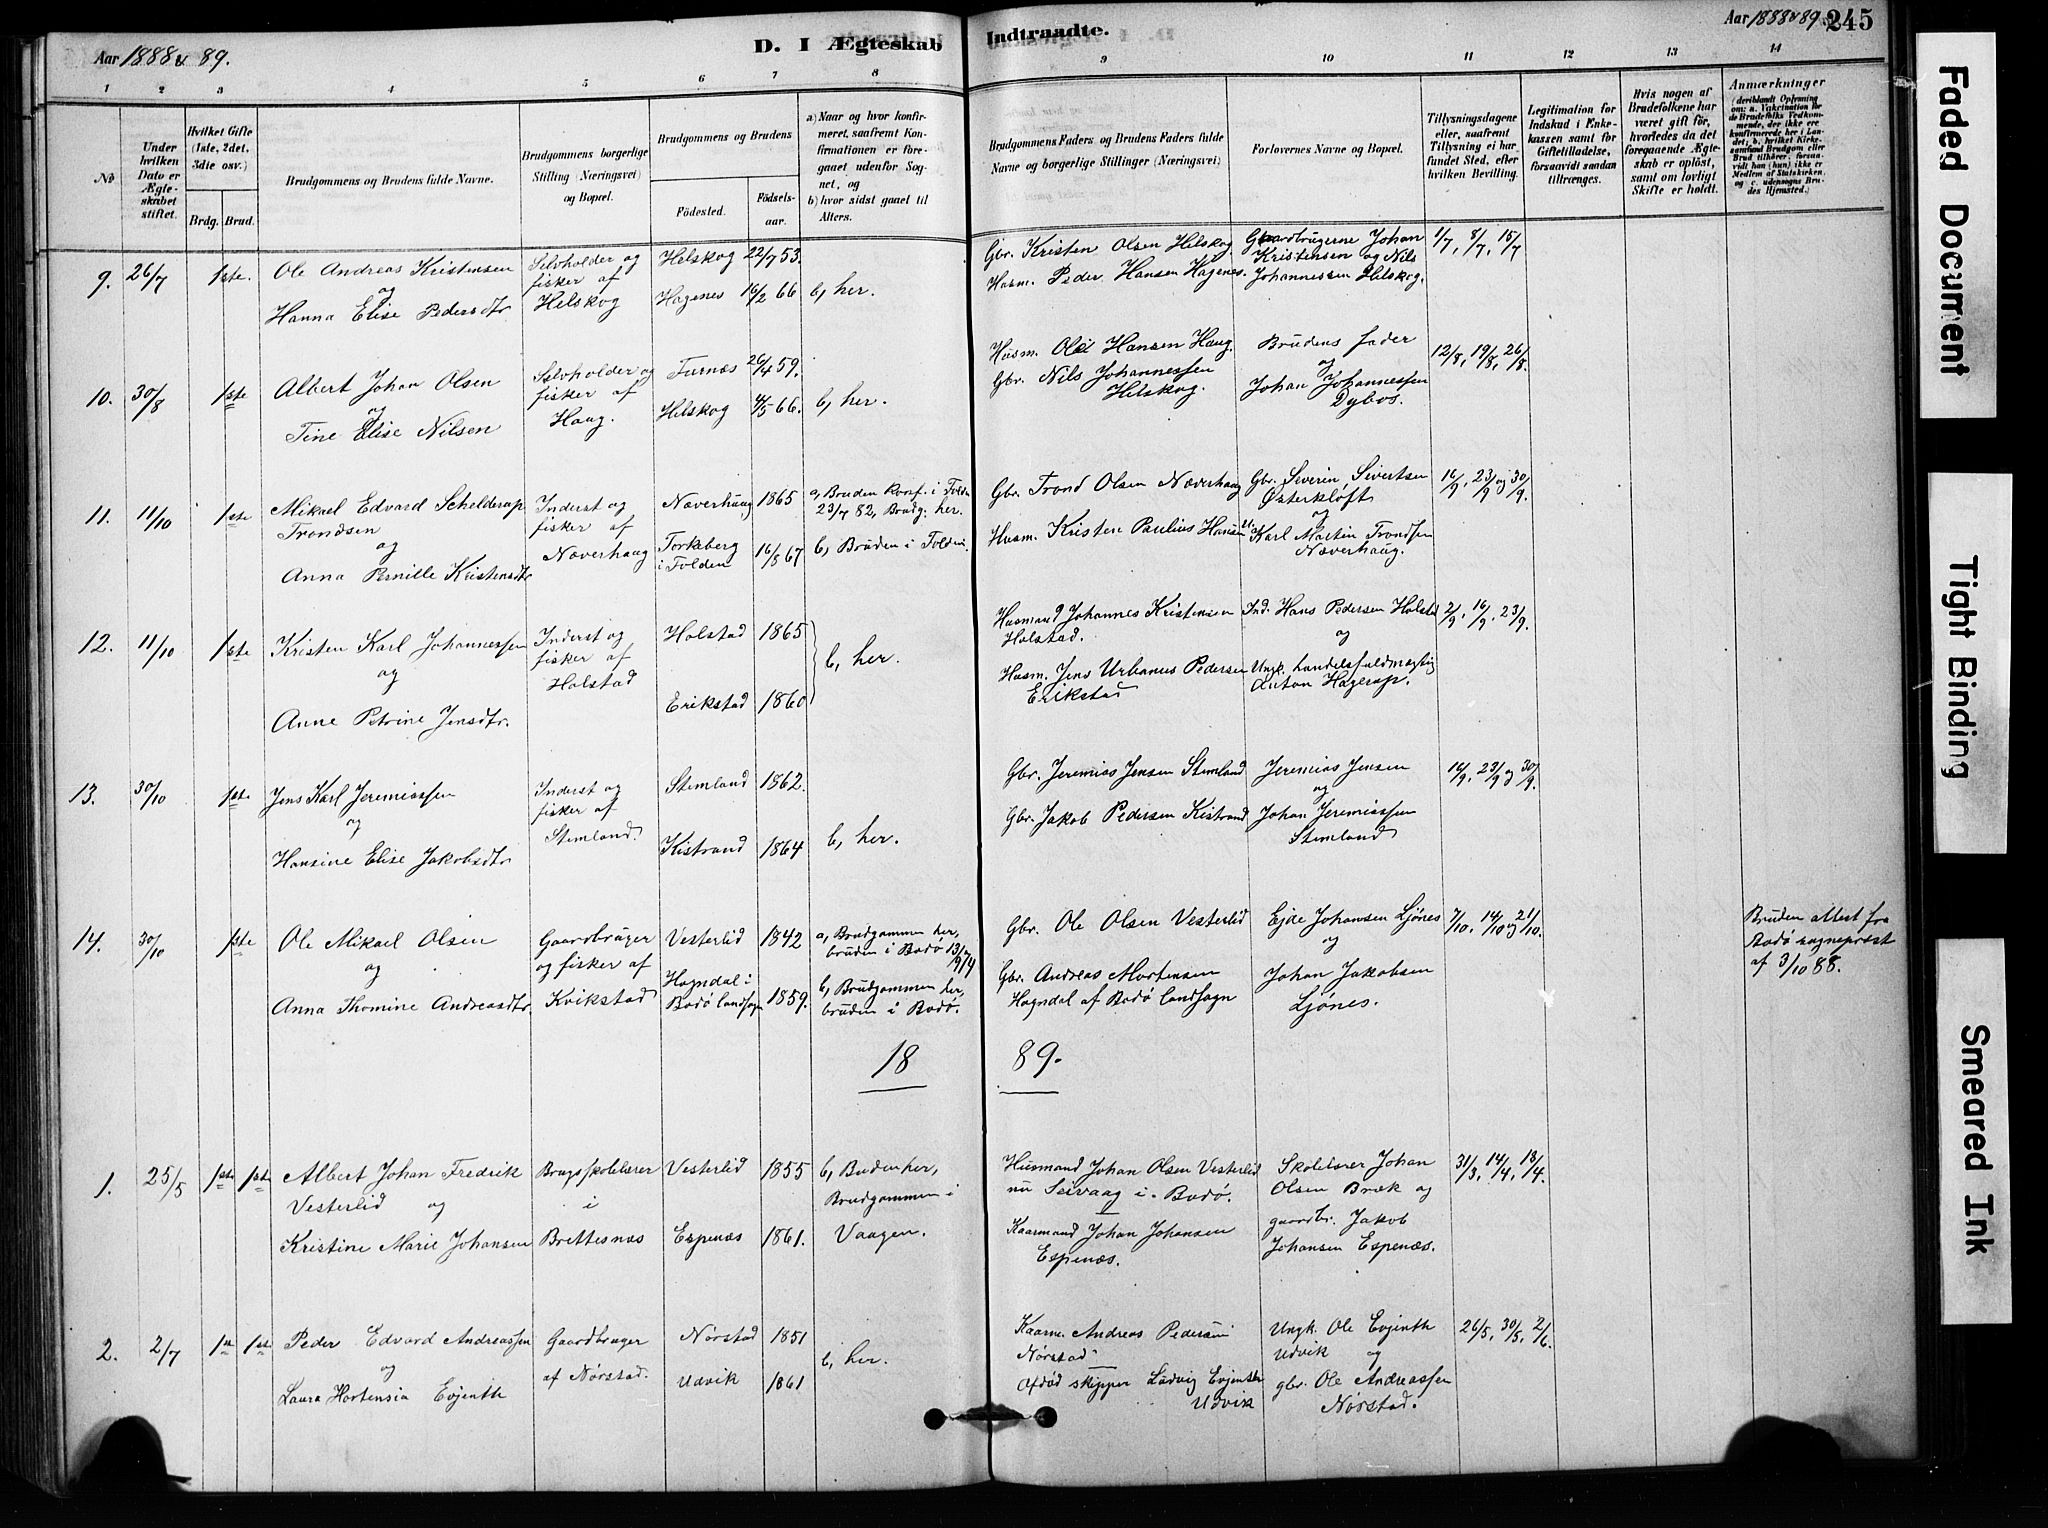 Aar 1888 & 89.
D. I Ægteskab
Indtraadte.
Aar 1888 & 89
245
1 2 3 4 5 6 7 8 9 10 11 12 13 14
No
Under hvilken Dato er Ægteskabet stiftet.
Hvilket Gifte (1ste, 2det, 3die osv.)
Brdg. Brud.
Brudgommens og Brudens fulde Navne.
Brudgommens borgerlige Stilling (Næringsvei) og Bopæl.
Brudgommens og Brudens
Fødested.
Fødselsaar.
a) Naar og hvor konfirmeret, saafremt Konfirmationen er foregaaet udenfor Sognet, og
b) hvor sidst gaaet til Alters.
Brudgommens Faders og Brudens Faders fulde Navne og borgerlige Stillinger (Næringsvei)
Forlovernes Navne og Bopæl.
Tillysningsdagene eller, saafremt Tillysning ei har fundet Sted, efter hvilken Bevilling.
Legitimation for Indskud i Enkekassen samt for Giftetilladelse, forsaavidt saadan tiltrænges.
Hvis nogen af Brudefolkene har været gift før, hvorledes da det foregaaende Ægteskab er opløst, samt om lovligt Skifte er holdt.
Anmærkninger
(deriblandt Oplysning om: a. Vakcination for de Brudefolks Vedkommende, der ikke ere konfirmerede her i Landet; b. hvilket Kirkesamfund Brudgom eller Brud tilhører, forsaavidt han (hun) ikke er Medlem af Statskirken, og c. udensogns Brudes Hjemsted.)
9. 26/7 1ste.
Ole Andreas Kristensen
og
Hanna Elise Pedersdtr
Selvholder og
fisker af
Helskog
Helskog 22/7 53.
Hagenes 16/2 66
b, her.
Gbr. Kristen Olsen Helskog
Husm. Peder Hansen Hagenes.
Gaardbrugerne Johan
Kristensen og Nils
Johannessen Helskog.
1/7, 8/7, 15/7
10. 30/8 1ste
Albert Johan Olsen
og
Tine Elise Nilsen
Selvholder og
fisker af
Haug.
Furnæs 26/4 59.
Helskog 4/5 66.
b, her.
Husm. Ole Hansen Haug.
Gbr. Nils Johannessen
Helskog.
Brudens fader
og
Johan Johannessen
Dybos.
12/8, 19/8, 26/8.
11. 11/10 1ste
Mikael Edvard Schelderup
Trondsen
og
Anna Pernille Kristensdtr
Inderst og
fisker af
Næverhaug
Næverhaug 1865
Torkeberg
i Folden 16/8 67
a, Bruden konf. i Folden
23/7 82, Brudg. her.
b, Bruden i Folden.
Gbr. Trond Olsen Næverhaug
Husm. Kristen Paulius Hansen
Gbr. Severin Sivertsen
Østerkløft
og
Karl Martin Trondsen
Næverhaug.
16/9, 23/9 og 30/9.
12. 11/10 1ste
Kristen Karl Johannessen
og
Anne Petrine Jensdtr.
Inderst og
fisker af
Holstad
Holstad 1865
Erikstad 1860
b, her.
Husmand Johannes Kristensen
Holstad.
Husm. Jens Urbanus Pedersen
Erikstad
Ind. Hans Pedersen Holstad
og
Ungk. handelsfuldmægtig
Anton Hagerup.
2/9, 16/9, 23/9.
13. 30/10 1ste
Jens Karl Jeremiassen
og
Hansine Elise Jakobsdtr
Inderst og
fisker af
Stemland
Stemland 1862.
Kistrand 1864
b, her.
Gbr. Jeremias Jensen Stemland
Gbr. Jakob Pedersen Kistrand
Jeremias Jensen
og
Johan Jeremiassen
Stemland
16/9, 23/9 og 30/9.
14. 30/10 1ste
Ole Mikael Olsen
og
Anna Thomine Andreasdtr.
Gaardbruger
og fisker af
Kvikstad
Vesterlid 1842
Hogndal i
Bodø landsogn 1859.
a, Brudgommen her,
bruden i Bodø 13/9 74
b, Brudgommen her,
bruden i Bodø.
Gbr. Ole Olsen Vesterlid
Gbr. Andreas Mortensen
Hogndal af Bodø landsogn
Ejde Johansen Ljønes
og
Johan Jakobsen
Ljønes.
7/10, 14/10 og 21/10.
Bruden attest fra
Bodø sogneprest
af 3/10 88.
18 89.
1. 25/5 1ste 1ste
Albert Johan Fredrik
Vesterlid og
Kristine Marie Johansen
Brugsskolelærer
i
Brettesnæs
Vesterlid 1855
Espenæs 1861.
b, Bruden her,
Brudgommen i
Vaagen.
Husmand Johan Olsen Vesterlid
nu Seivaag i Bodø.
Kaarmand Johan Johansen
Espenæs.
Skolelærer Johan
Olsen Bræk og
gaardbr. Jakob
Johansen Espenæs.
31/3, 14/4, 18/4.
2. 2/7 1ste 1ste
Peder Edvard Andreassen
og
Laura Hortensia Evjenth
Gaardbruger
af Nørstad.
Nørstad 1851
Udvik 1861
b, her.
Kaarm. Andreas Pedersen
Nørstad
Afdød skipper Ludvig Evjenth
Udvik
Ungk. Ole Evjenth
Udvik og
gbr. Ole Andreassen
Nørstad.
26/5, 30/5, 2/6.
Faded Document
Tight Binding
Smeared Ink